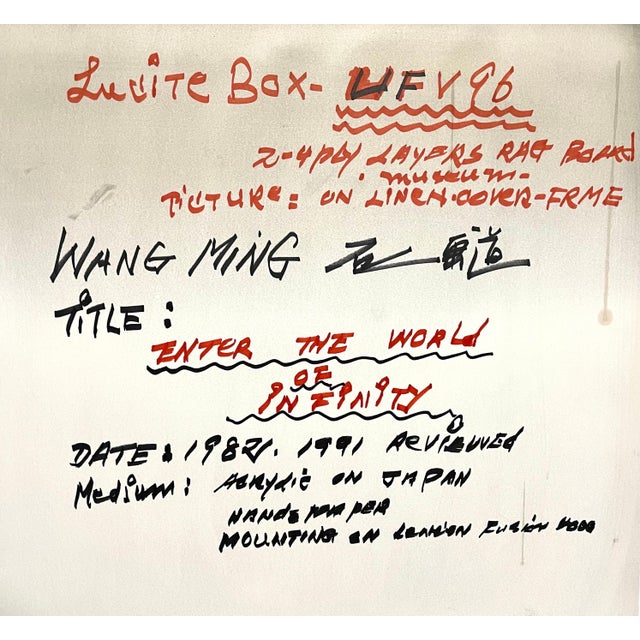 Lucite Box- UF V 96
2-4ply LAYERS RAG BOARD
museum-
PICTURE: ON LINEN.COVER-FRME
WANG MING
TITLE:
ENTER THE WORLD
OF
INFINITY
DATE: 1982, 1991 REVIEWED
Medium: ACRYLIC ON JAPAN
MOUNTING ON